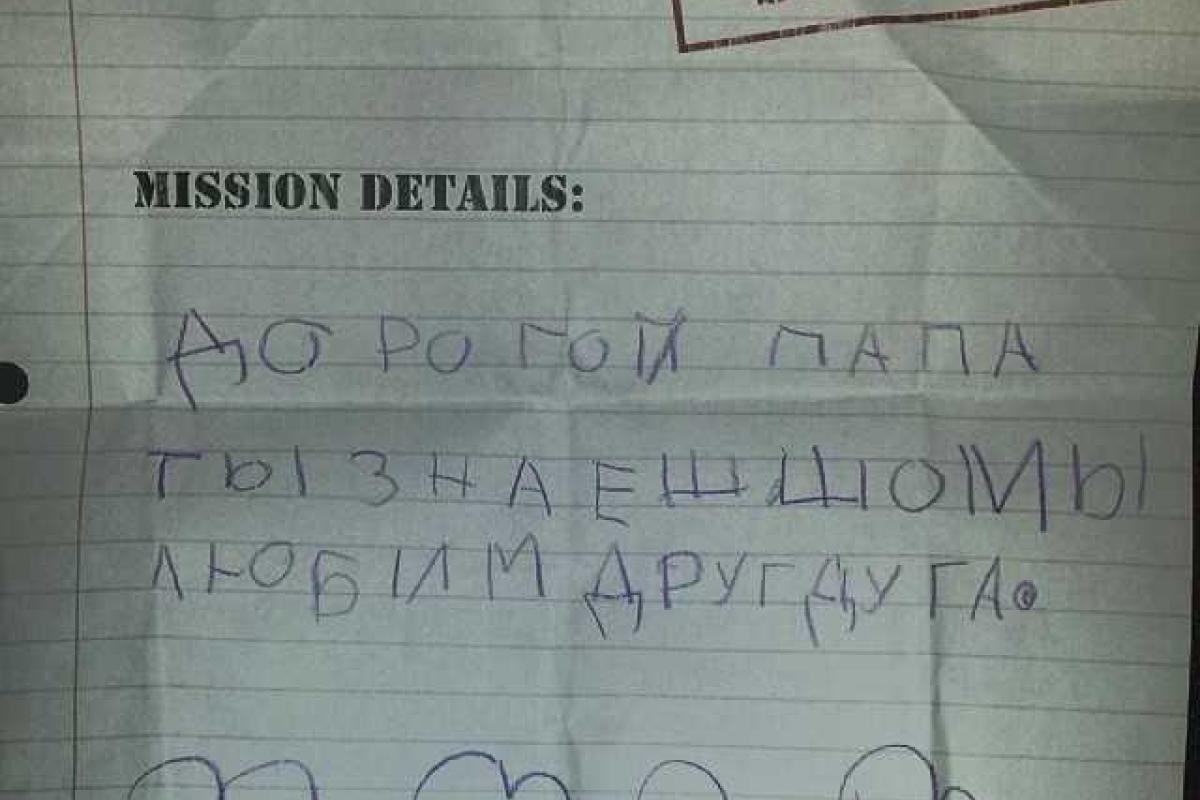 MISSION DETAILS:
ДОРОГОЙ ПАПА
ТЫ ЗНАЕШ ШОМЫ
ЛЮБИМ ДРУГДУГА.